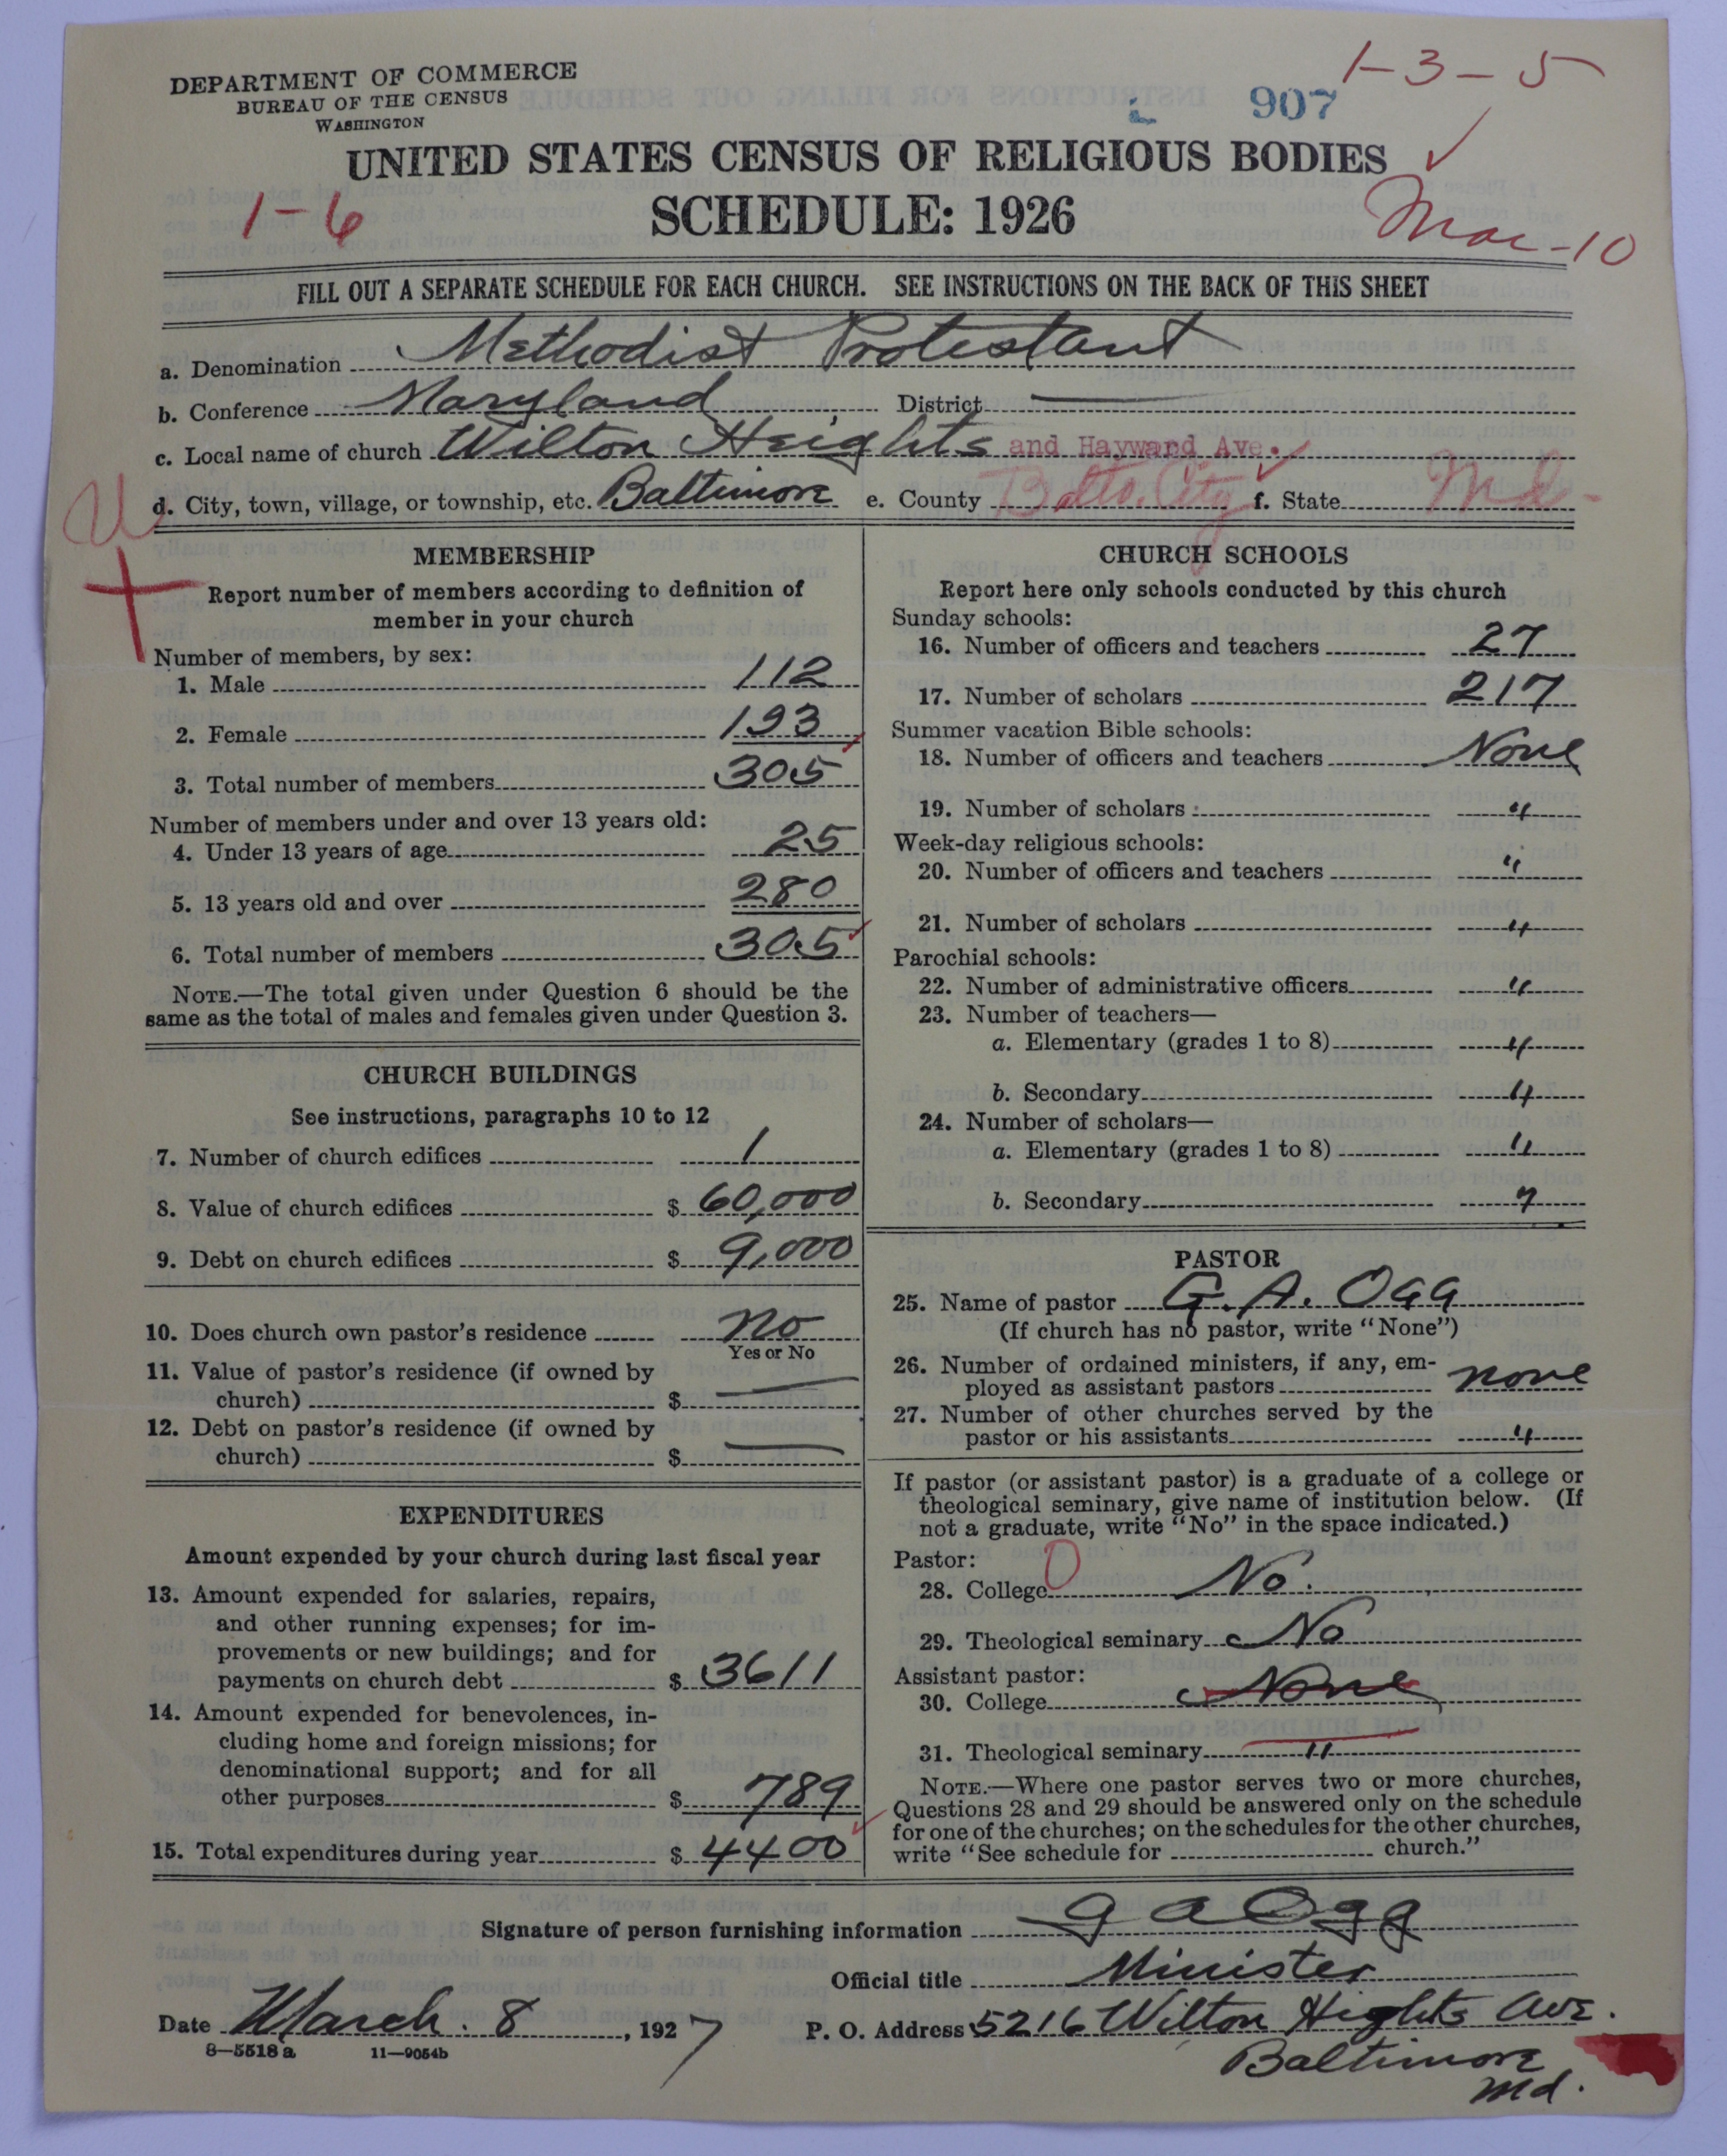 1-3-5
DEPARTMENT OF COMMERCE
BUREAU OF THE CENSUS
WASHINGTON
907
UNITED STATES CENSUS OF RELIGIOUS BODIES
SCHEDULE: 1926
1-6
Mar-10
FILL OUT A SEPARATE SCHEDULE FOR EACH CHURCH. SEE INSTRUCTIONS ON THE BACK OF THIS SHEET
a. Denomination Methodist Protestant
b. Conference Maryland District —
c. Local name of church Wilton Heights and Hayward Ave.
d. City, town, village, or township, etc. Baltimore e. County Balto. City f. State Md-
U
MEMBERSHIP
Report number of members according to definition of
member in your church
Number of members, by sex:
1. Male 112
2. Female 193
3. Total number of members 305
Number of members under and over 13 years old:
4. Under 13 years of age 25
5. 13 years old and over 280
6. Total number of members 305
NOTE.—The total given under Question 6 should be the
same as the total of males and females given under Question 3.
CHURCH BUILDINGS
See instructions, paragraphs 10 to 12
7. Number of church edifices 1
8. Value of church edifices $ 60,000
9. Debt on church edifices $ 9,000
10. Does church own pastor's residence no
Yes or No
11. Value of pastor's residence (if owned by
church) $ —
12. Debt on pastor's residence (if owned by
church) $ —
EXPENDITURES
Amount expended by your church during last fiscal year
13. Amount expended for salaries, repairs,
and other running expenses; for im-
provements or new buildings; and for
payments on church debt $ 3611
14. Amount expended for benevolences, in-
cluding home and foreign missions; for
denominational support; and for all
other purposes $ 789
15. Total expenditures during year $ 4400
CHURCH SCHOOLS
Report here only schools conducted by this church
Sunday schools:
16. Number of officers and teachers 27
17. Number of scholars 217
Summer vacation Bible schools:
18. Number of officers and teachers None
19. Number of scholars "
Week-day religious schools:
20. Number of officers and teachers "
21. Number of scholars "
Parochial schools:
22. Number of administrative officers "
23. Number of teachers—
a. Elementary (grades 1 to 8) "
b. Secondary "
24. Number of scholars—
a. Elementary (grades 1 to 8) "
b. Secondary "
PASTOR
25. Name of pastor G. A. Ogg
(If church has no pastor, write "None")
26. Number of ordained ministers, if any, em-
ployed as assistant pastors none
27. Number of other churches served by the
pastor or his assistants "
If pastor (or assistant pastor) is a graduate of a college or
theological seminary, give name of institution below. (If
not a graduate, write "No" in the space indicated.)
Pastor:
28. College 0 No.
29. Theological seminary No
Assistant pastor:
30. College None
31. Theological seminary "
NOTE.—Where one pastor serves two or more churches,
Questions 28 and 29 should be answered only on the schedule
for one of the churches; on the schedules for the other churches,
write "See schedule for church."
Signature of person furnishing information G A Ogg
Official title Minister
Date March. 8, 1927 P. O. Address 5216 Wilton Hights Ave.
8—5518 a 11—9054b
Baltimore
Md.